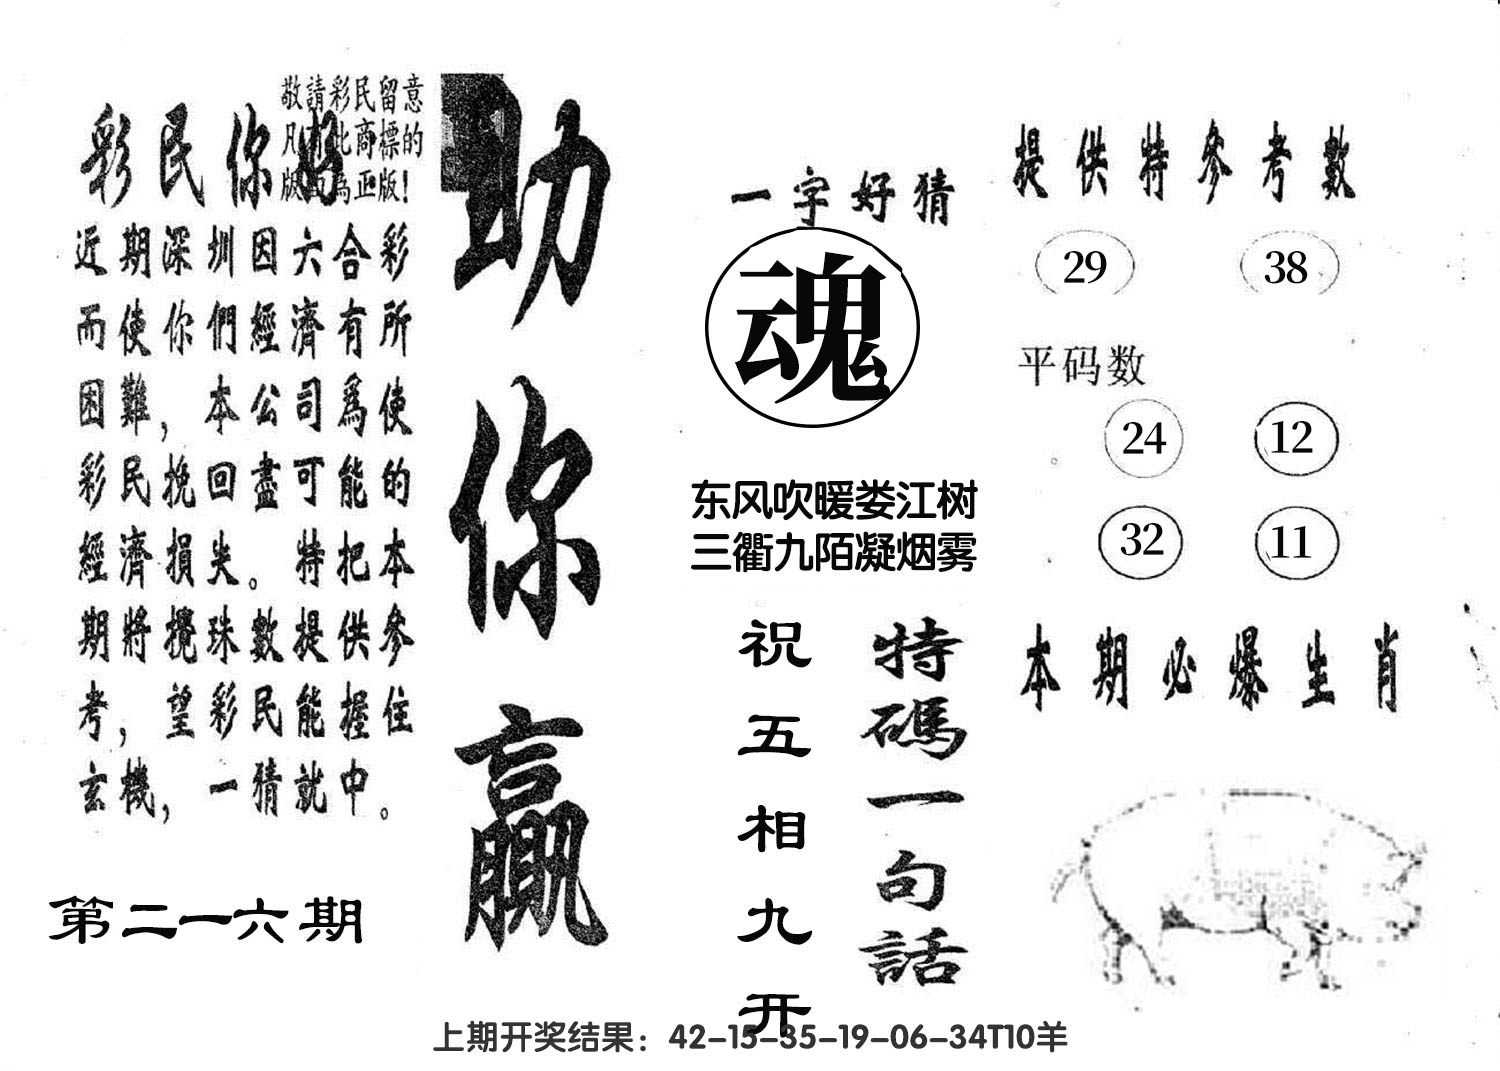 敬請彩民留意
凡有此商標的
版面為正版!
彩民你好
近期深圳因六合彩
而使你們經濟有所
困難，本公司爲使
彩民挽回盡可能的
經濟損失。特把本
期將攪珠數提供參
考，望彩民能握住
玄機，一猜就中。
第二一六期
助你贏
一字好猜
魂
东风吹暖娄江树
三衢九陌凝烟雾
特碼一句話
祝五相九开
提供特參考數
29 38
平码数
24 12
32 11
本期必爆生肖
上期开奖结果：42-15-35-19-06-34T10羊